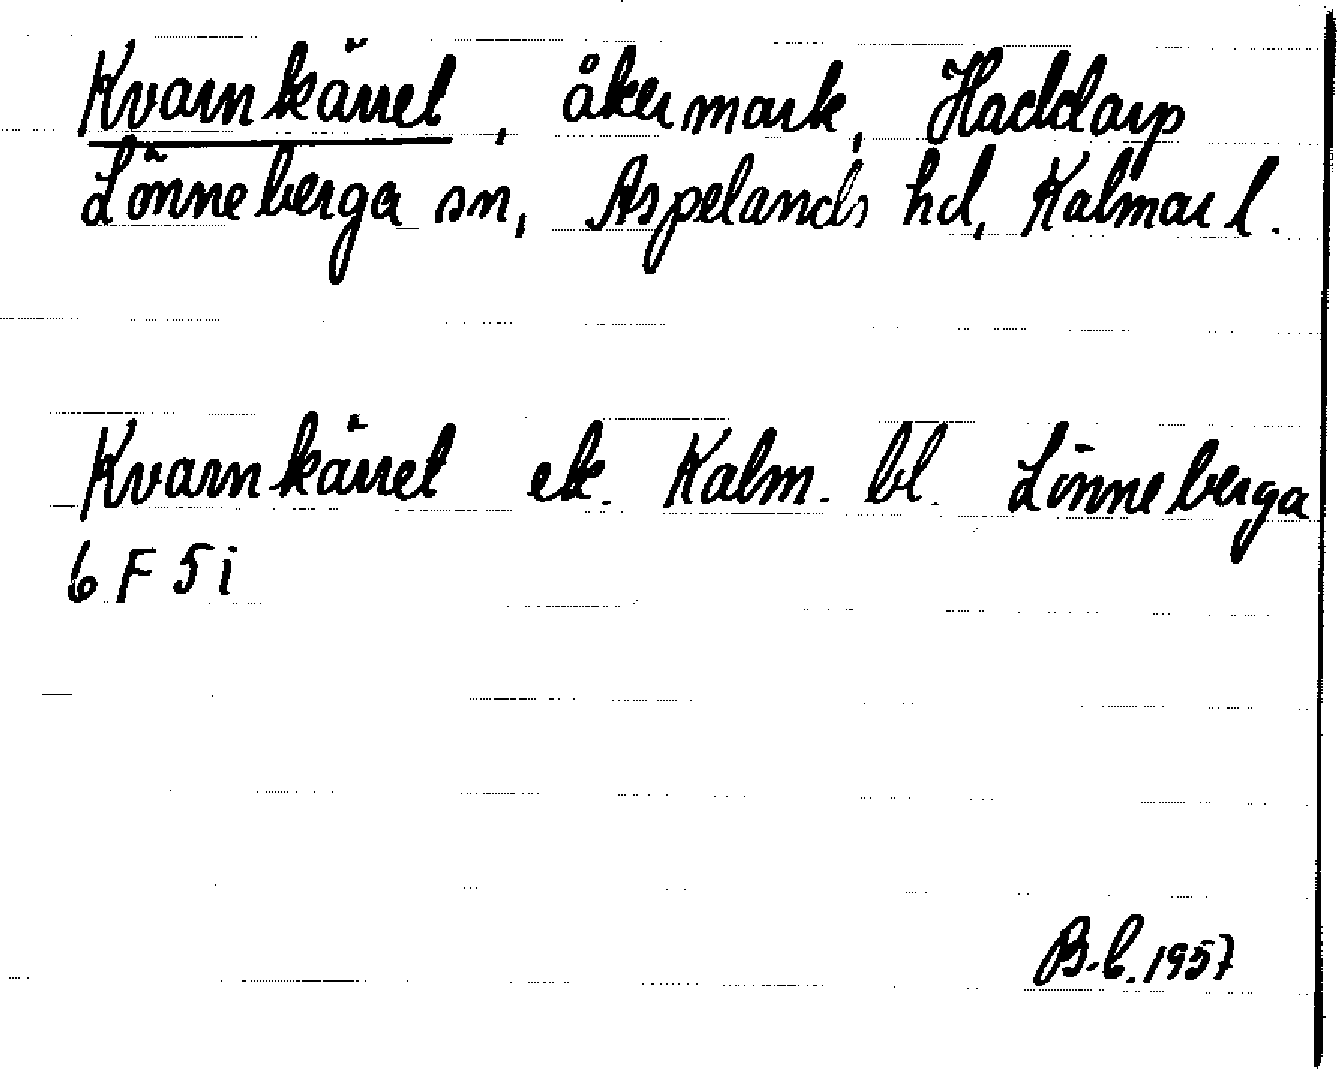 Kvarnkärret, åkermark, Haddarp
Lönneberga sn, Aspelands hd, Kalmar l.
Kvarnkärret ek. Kalm. bl. Lönneberga
6 F 5 i
B.b. 1957